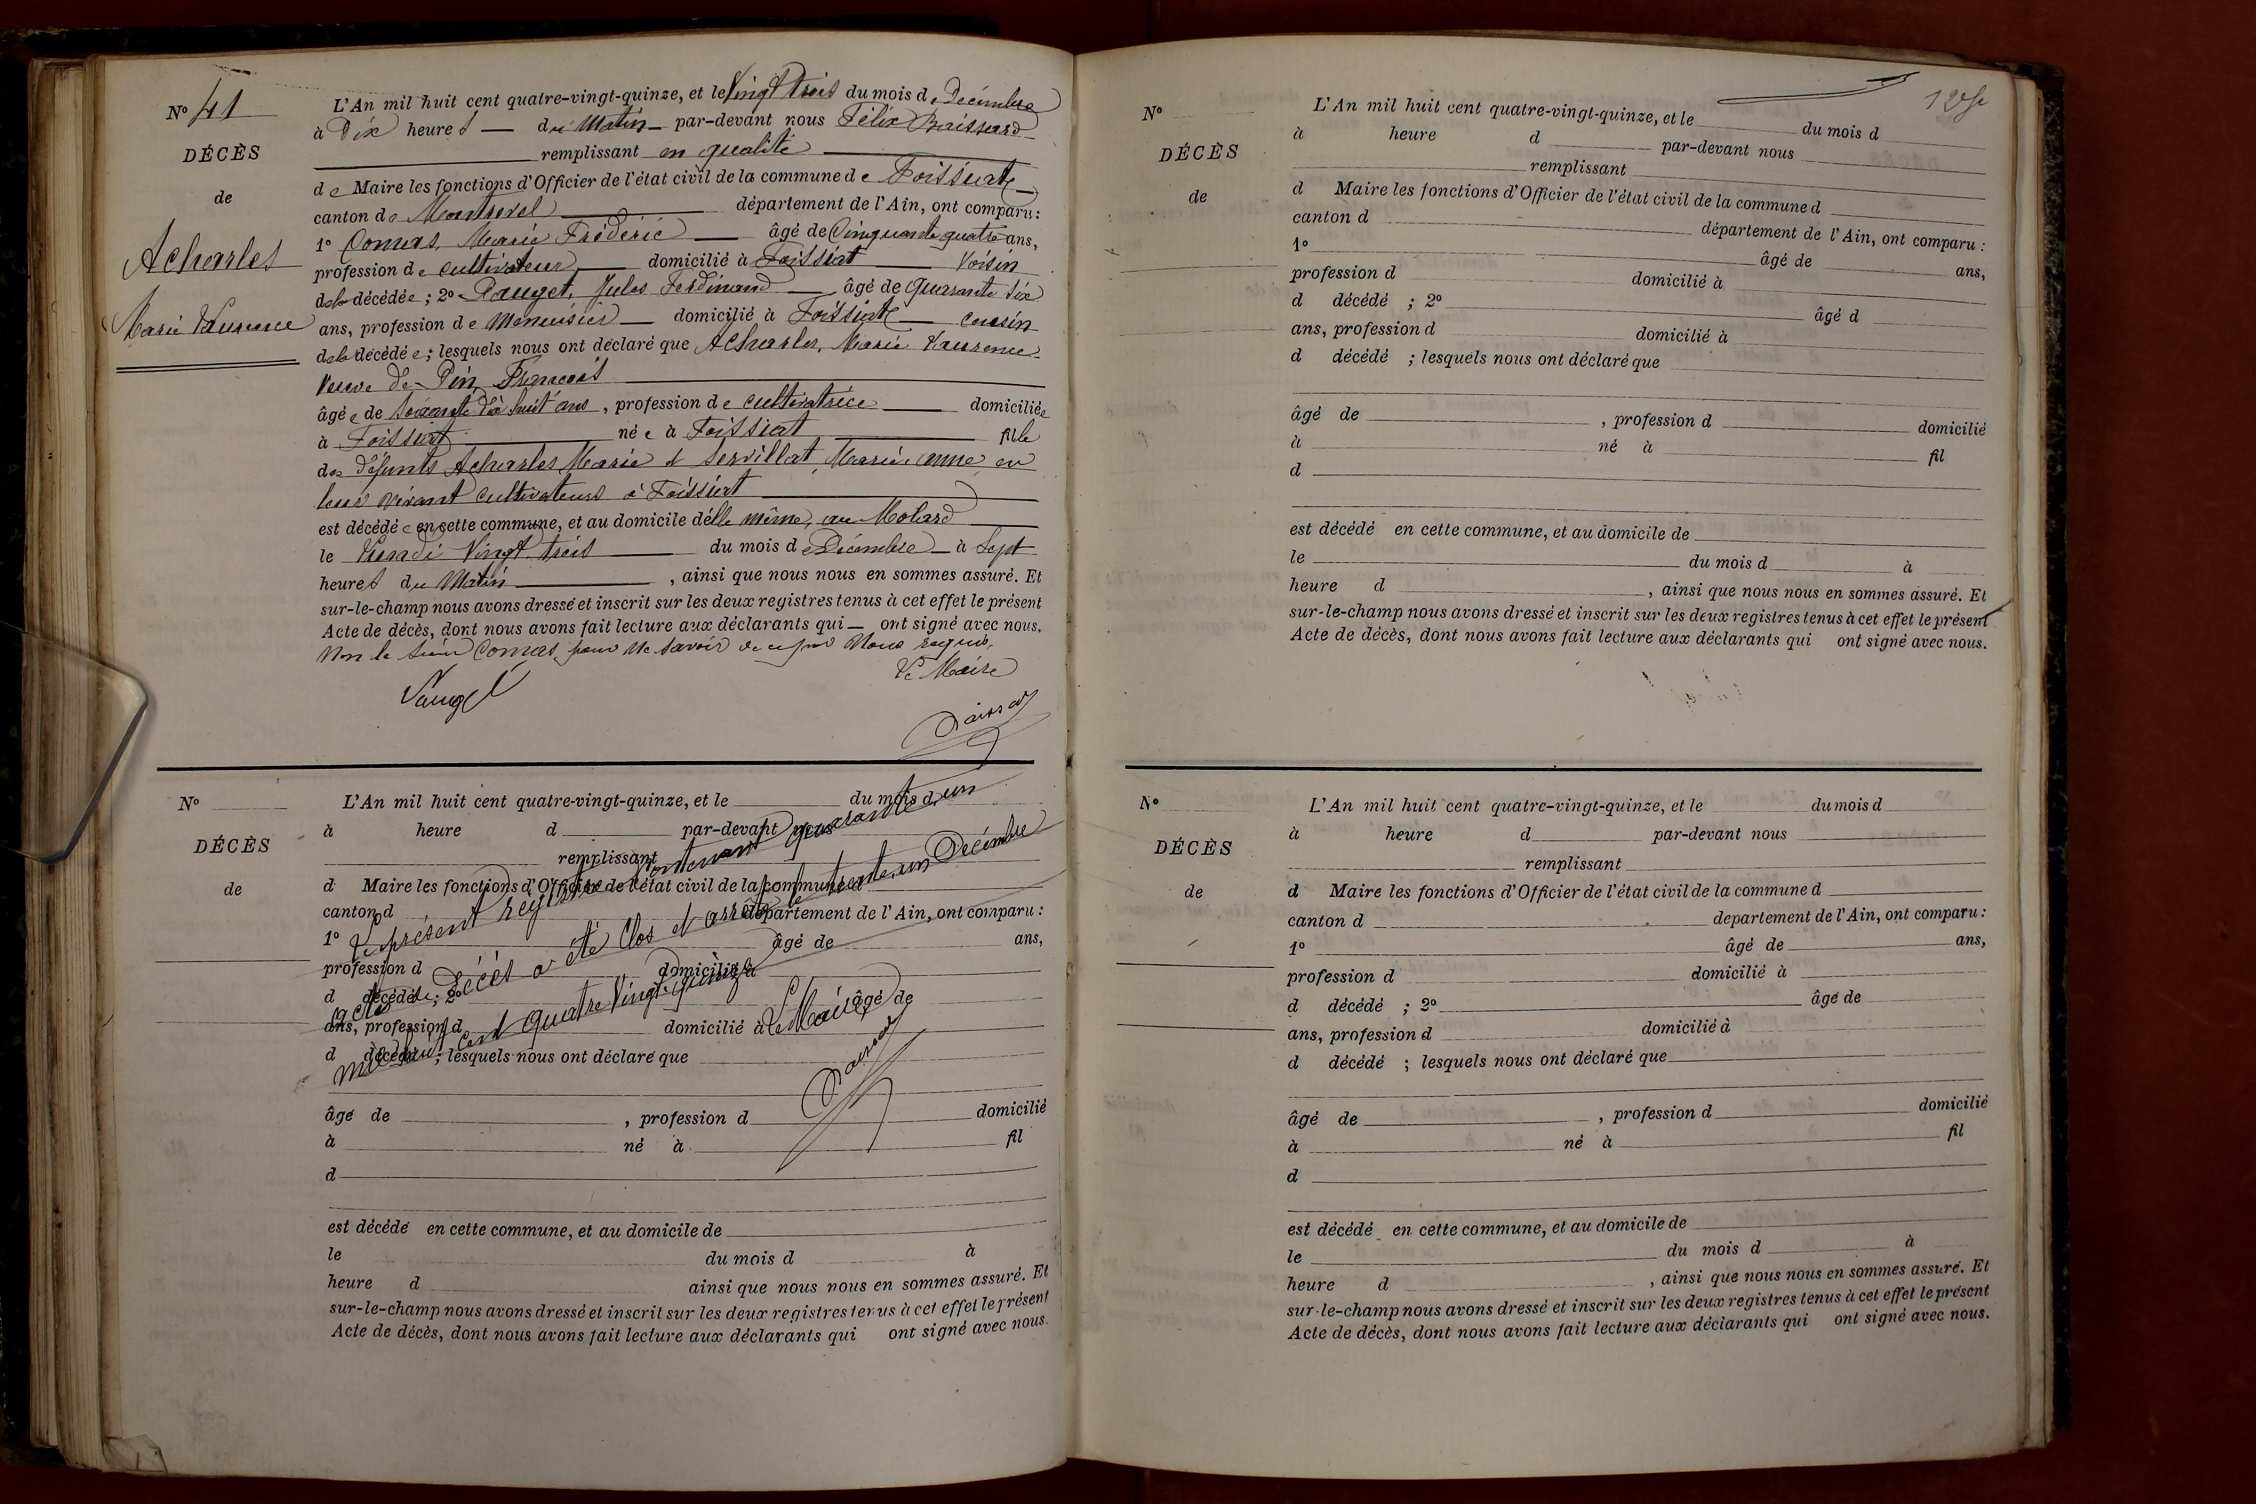 No 41
DÉCÈS
de
Acharles
Marie Laurence
L'An mil huit cent quatre-vingt-quinze, et le Vingt trois du mois de Décembre
à Dix heures du Matin par-devant nous Félix
remplissant en qualité
de Maire les fonctions d'Officier de l'état civil de la commune de Foissiat
canton de Montrevel département de l'Ain, ont comparu :
1o Comas, Marie Frédéric âgé de Cinquante quatre ans,
profession de cultivateur domicilié à Foissiat Voisin
de la décédée ; 2o Pauget, Jules Ferdinand âgé de quarante six
ans, profession de Menuisier domicilié à Foissiat cousin
de la décédée ; lesquels nous ont déclaré que Acharles, Marie Laurence
Veuve de Pin François
âgée de soixante dix huit ans, profession de cultivatrice domiciliée
à Foissiat née à Foissiat fille
des défunts Acharles Marie et Servillat, Marie, anne, en
leur vivant cultivateurs à Foissiat
est décédée en cette commune, et au domicile d'elle même, au Molard
le Lundi Vingt trois du mois de Décembre à Sept
heures du Matin, ainsi que nous nous en sommes assuré. Et
sur-le-champ nous avons dressé et inscrit sur les deux registres tenus à cet effet le présent
Acte de décès, dont nous avons fait lecture aux déclarants qui ont signé avec nous.
Non le sieur Comas pour ne savoir de ce par Nous requis.
Le Maire
Pauget
No
DÉCÈS
de
L'An mil huit cent quatre-vingt-quinze, et le du mois d
à heure d par-devant nous
remplissant
d Maire les fonctions d'Officier de l'état civil de la commune d
canton d département de l'Ain, ont comparu :
1o âgé de ans,
profession d domicilié à
d décédé ; 2o âgé de
ans, profession d domicilié à
d décédé ; lesquels nous ont déclaré que
âgé de , profession d domicilié
à né à fil
d
est décédé en cette commune, et au domicile de
le du mois d à
heure d ainsi que nous nous en sommes assuré. Et
sur-le-champ nous avons dressé et inscrit sur les deux registres tenus à cet effet le présent
Acte de décès, dont nous avons fait lecture aux déclarants qui ont signé avec nous.
Le présent registre contenant quarante un
actes de Décès a été clos et arrêté le trente un Décembre
mil huit cent quatre Vingt quinze
Le Maire
No
DÉCÈS
de
L'An mil huit cent quatre-vingt-quinze, et le du mois d
à heure d par-devant nous
remplissant
d Maire les fonctions d'Officier de l'état civil de la commune d
canton d département de l'Ain, ont comparu :
1o âgé de ans,
profession d domicilié à
d décédé ; 2o âgé d
ans, profession d domicilié à
d décédé ; lesquels nous ont déclaré que
âgé de , profession d domicilié
à né à fil
d
est décédé en cette commune, et au domicile de
le du mois d à
heure d , ainsi que nous nous en sommes assuré. Et
sur-le-champ nous avons dressé et inscrit sur les deux registres tenus à cet effet le présent
Acte de décès, dont nous avons fait lecture aux déclarants qui ont signé avec nous.
No
DÉCÈS
de
L'An mil huit cent quatre-vingt-quinze, et le du mois d
à heure d par-devant nous
remplissant
d Maire les fonctions d'Officier de l'état civil de la commune d
canton d departement de l'Ain, ont comparu :
1o âgé de ans,
profession d domicilié à
d décédé ; 2o âgé de
ans, profession d domicilié à
d décédé ; lesquels nous ont déclaré que
âgé de , profession d domicilié
à né à fil
d
est décédé en cette commune, et au domicile de
le du mois d à
heure d , ainsi que nous nous en sommes assuré. Et
sur-le-champ nous avons dressé et inscrit sur les deux registres tenus à cet effet le présent
Acte de décès, dont nous avons fait lecture aux déclarants qui ont signé avec nous.